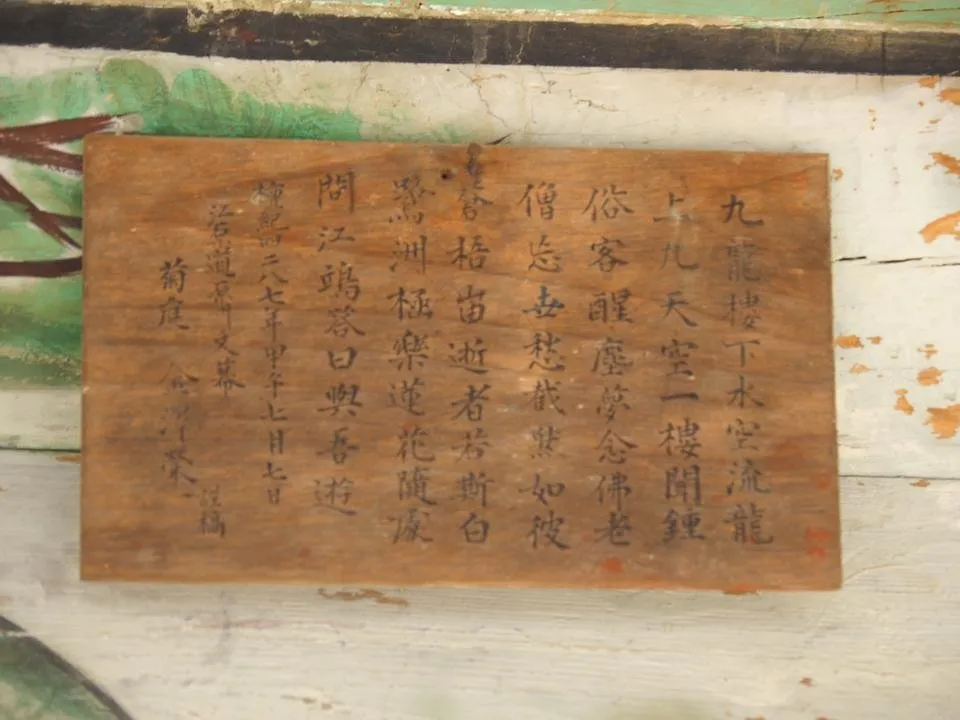 九龍樓下水空流龍
上九天空一樓聞鍾
俗客醒塵夢念佛老
僧忘世愁截然如彼
梧逝者若斯白
鷺洲極樂蓮花隨處
問江答曰與吾遊
檀紀四二八七年甲午七月七日
道
菊庭 金